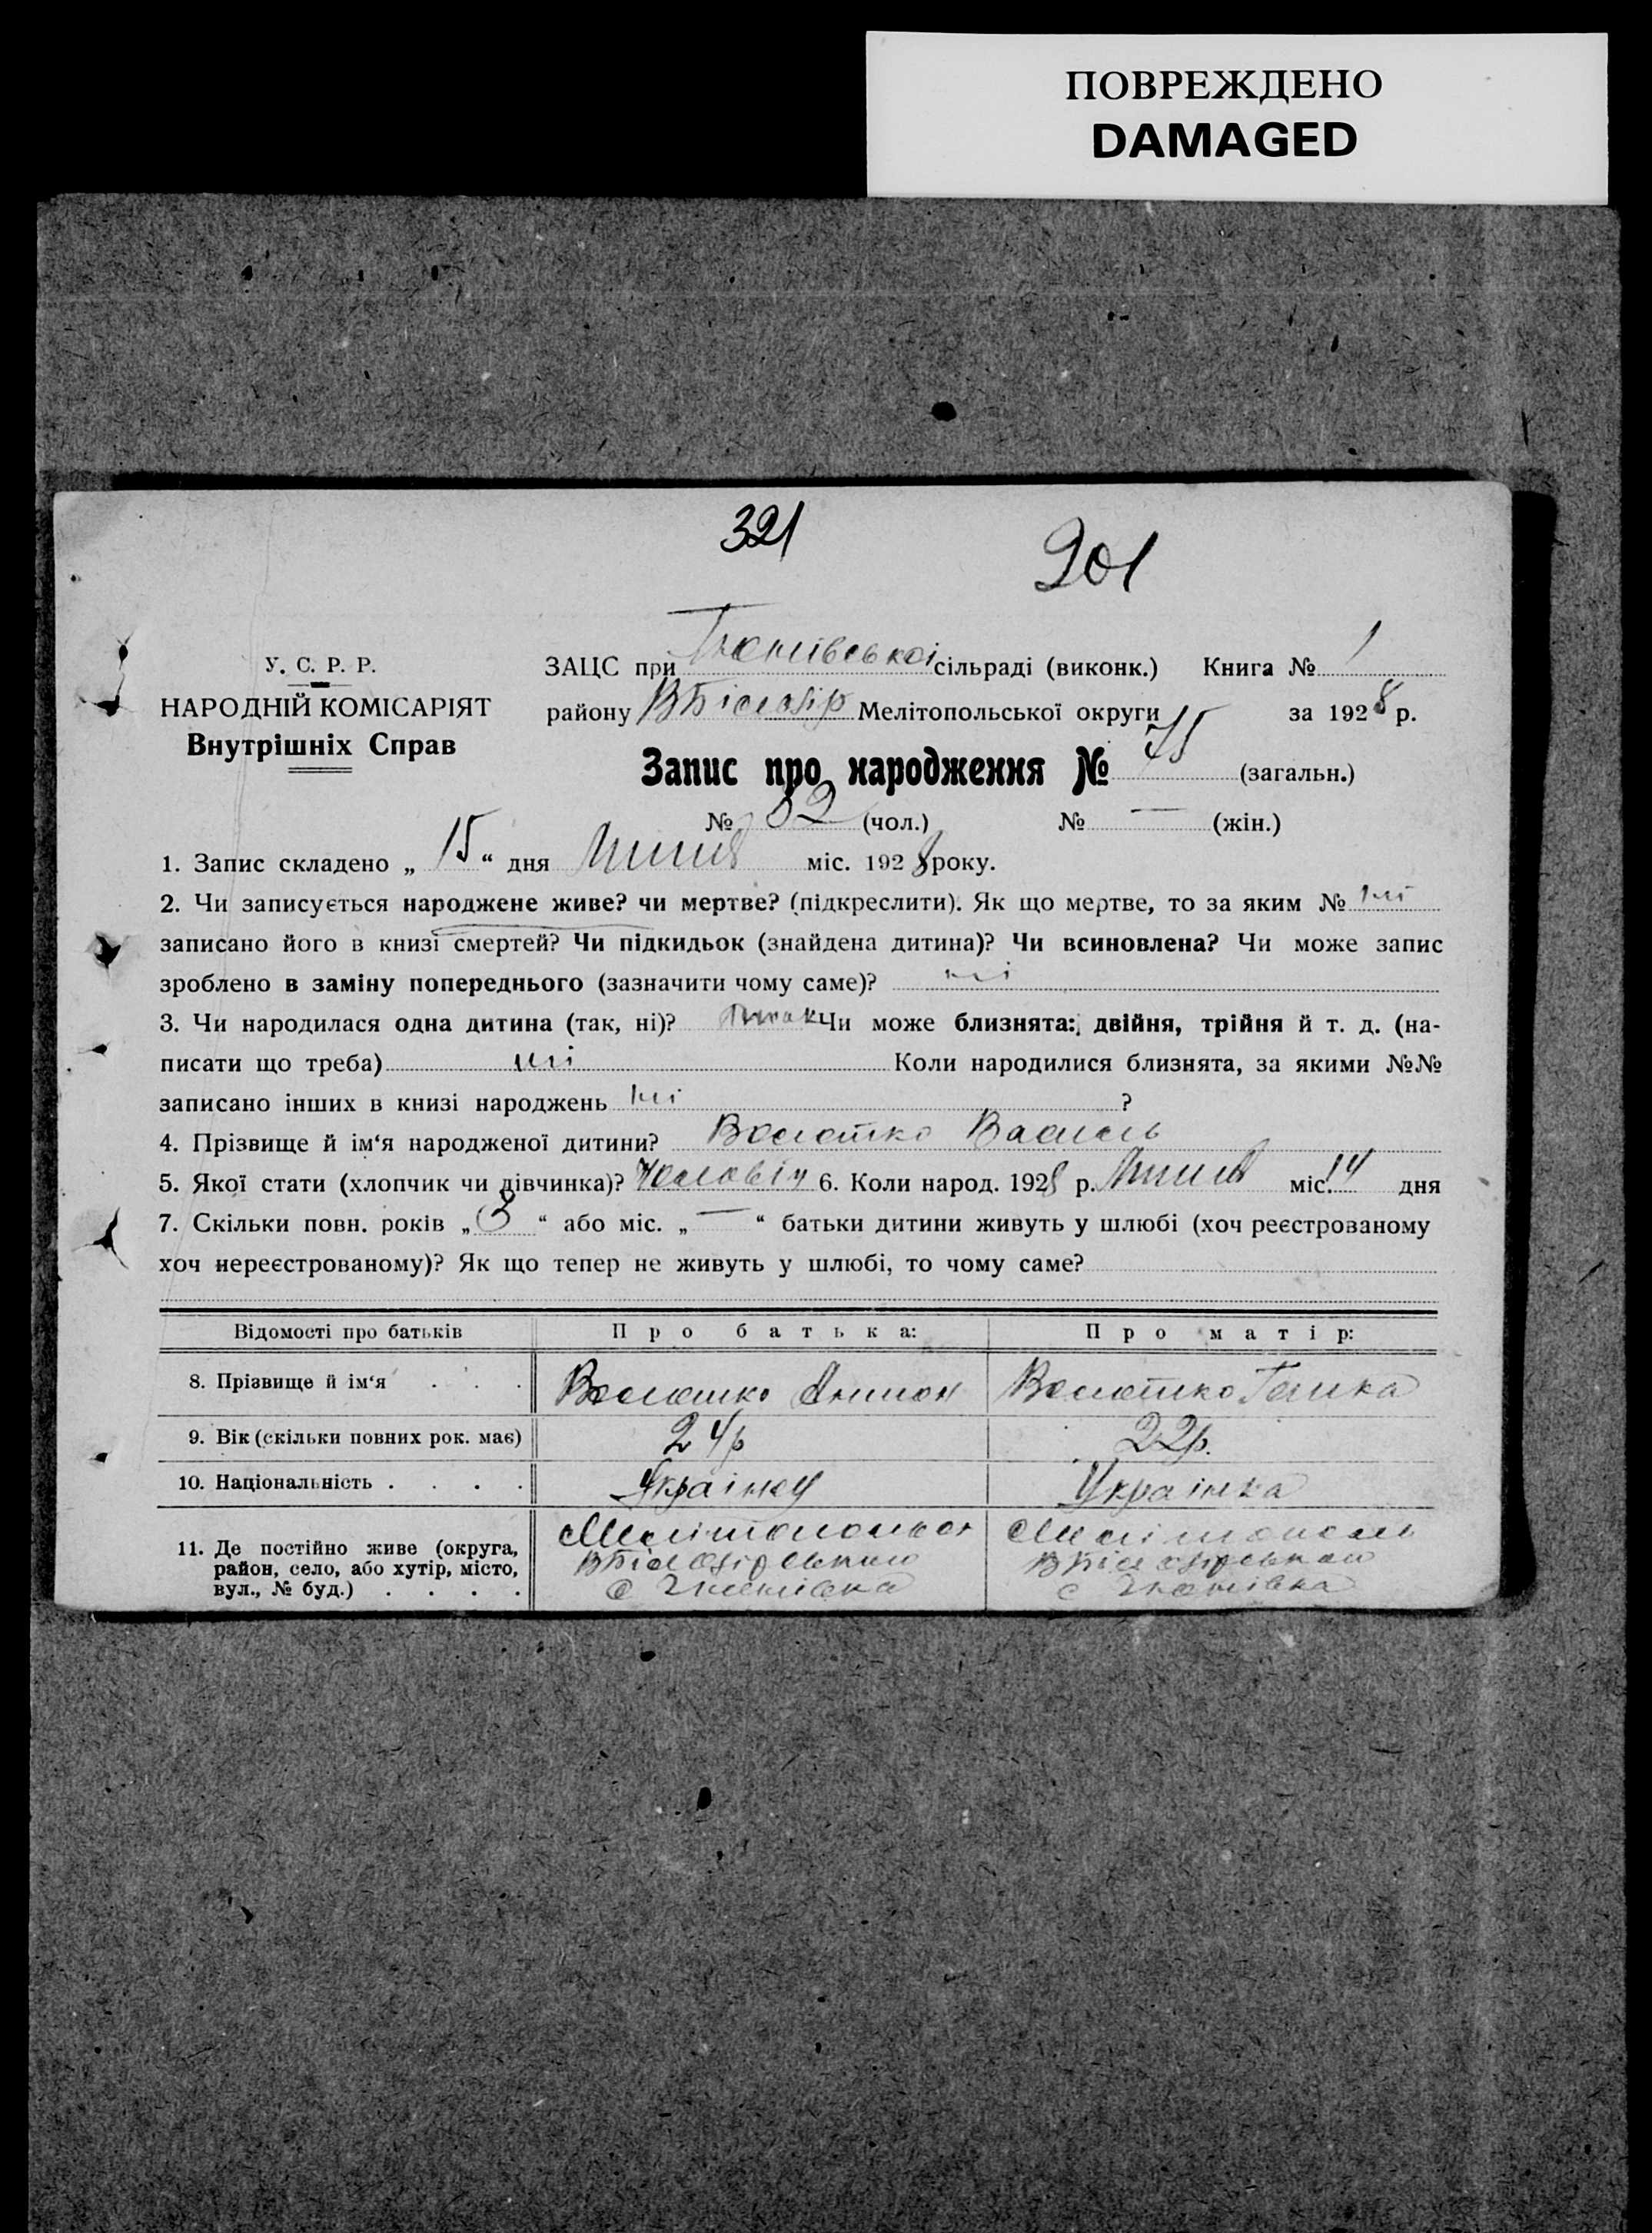 ПОВРЕЖДЕНО
DAMAGED
321
201
У. С. Р. Р.
НАРОДНІЙ КОМІСАРІЯТ
Внутрішніх Справ
ЗАЦС при сільраді (виконк.) Книга № 1
району Мелітопольської округи за 1928 р.
Запис про народження № 75 (загальн.)
№ (чол.) № — (жін.)
1. Запис складено „ 15 “ дня міс. 1928 року.
2. Чи записується народжене живе? чи мертве? (підкреслити). Як що мертве, то за яким № ні
записано його в книзі смертей? Чи підкидьок (знайдена дитина)? Чи всиновлена? Чи може запис
зроблено в заміну попереднього (зазначити чому саме)? ні
3. Чи народилася одна дитина (так, ні)? так Чи може близнята: двійня, трійня й т. д. (на-
писати що треба) ні Коли народилися близнята, за якими №№
записано інших в книзі народжень ні ?
4. Прізвище й ім‘я народженої дитини? Василь
5. Якої стати (хлопчик чи дівчинка)? 6. Коли народ. 1928 р. міс. 14 дня
7. Скільки повн. років „ 3 “ або міс. „ — “ батьки дитини живуть у шлюбі (хоч реєстрованому
хоч нереєстрованому)? Як що тепер не живуть у шлюбі, то чому саме?
Відомості про батьків Про батька: Про матір:
8. Прізвище й ім‘я . . .
9. Вік (скільки повних рок. має) 24р 22р.
10. Національність . . . . Українец Українка
11. Де постійно живе (округа,
район, село, або хутір, місто,
вул., № буд.) . . . .